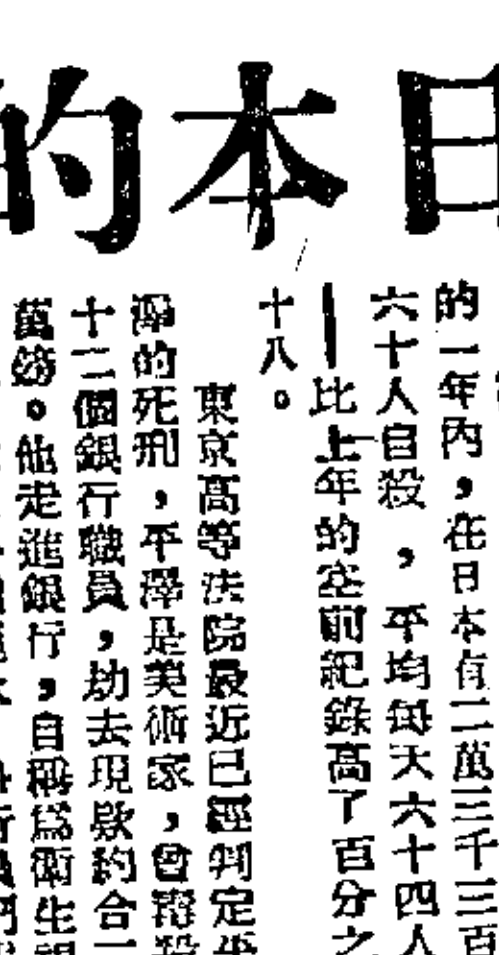 日本的
的一年內，在日本有二萬三千三百
六十人自殺，平均每天六十四人
——比上年的空前紀錄高了百分之
十八。
東京高等法院最近已經判定
澤的死刑，平澤是美術家，曾毒殺
十二個銀行職員，劫去現款約合一
萬鎊。他走進銀行，自稱爲衛生